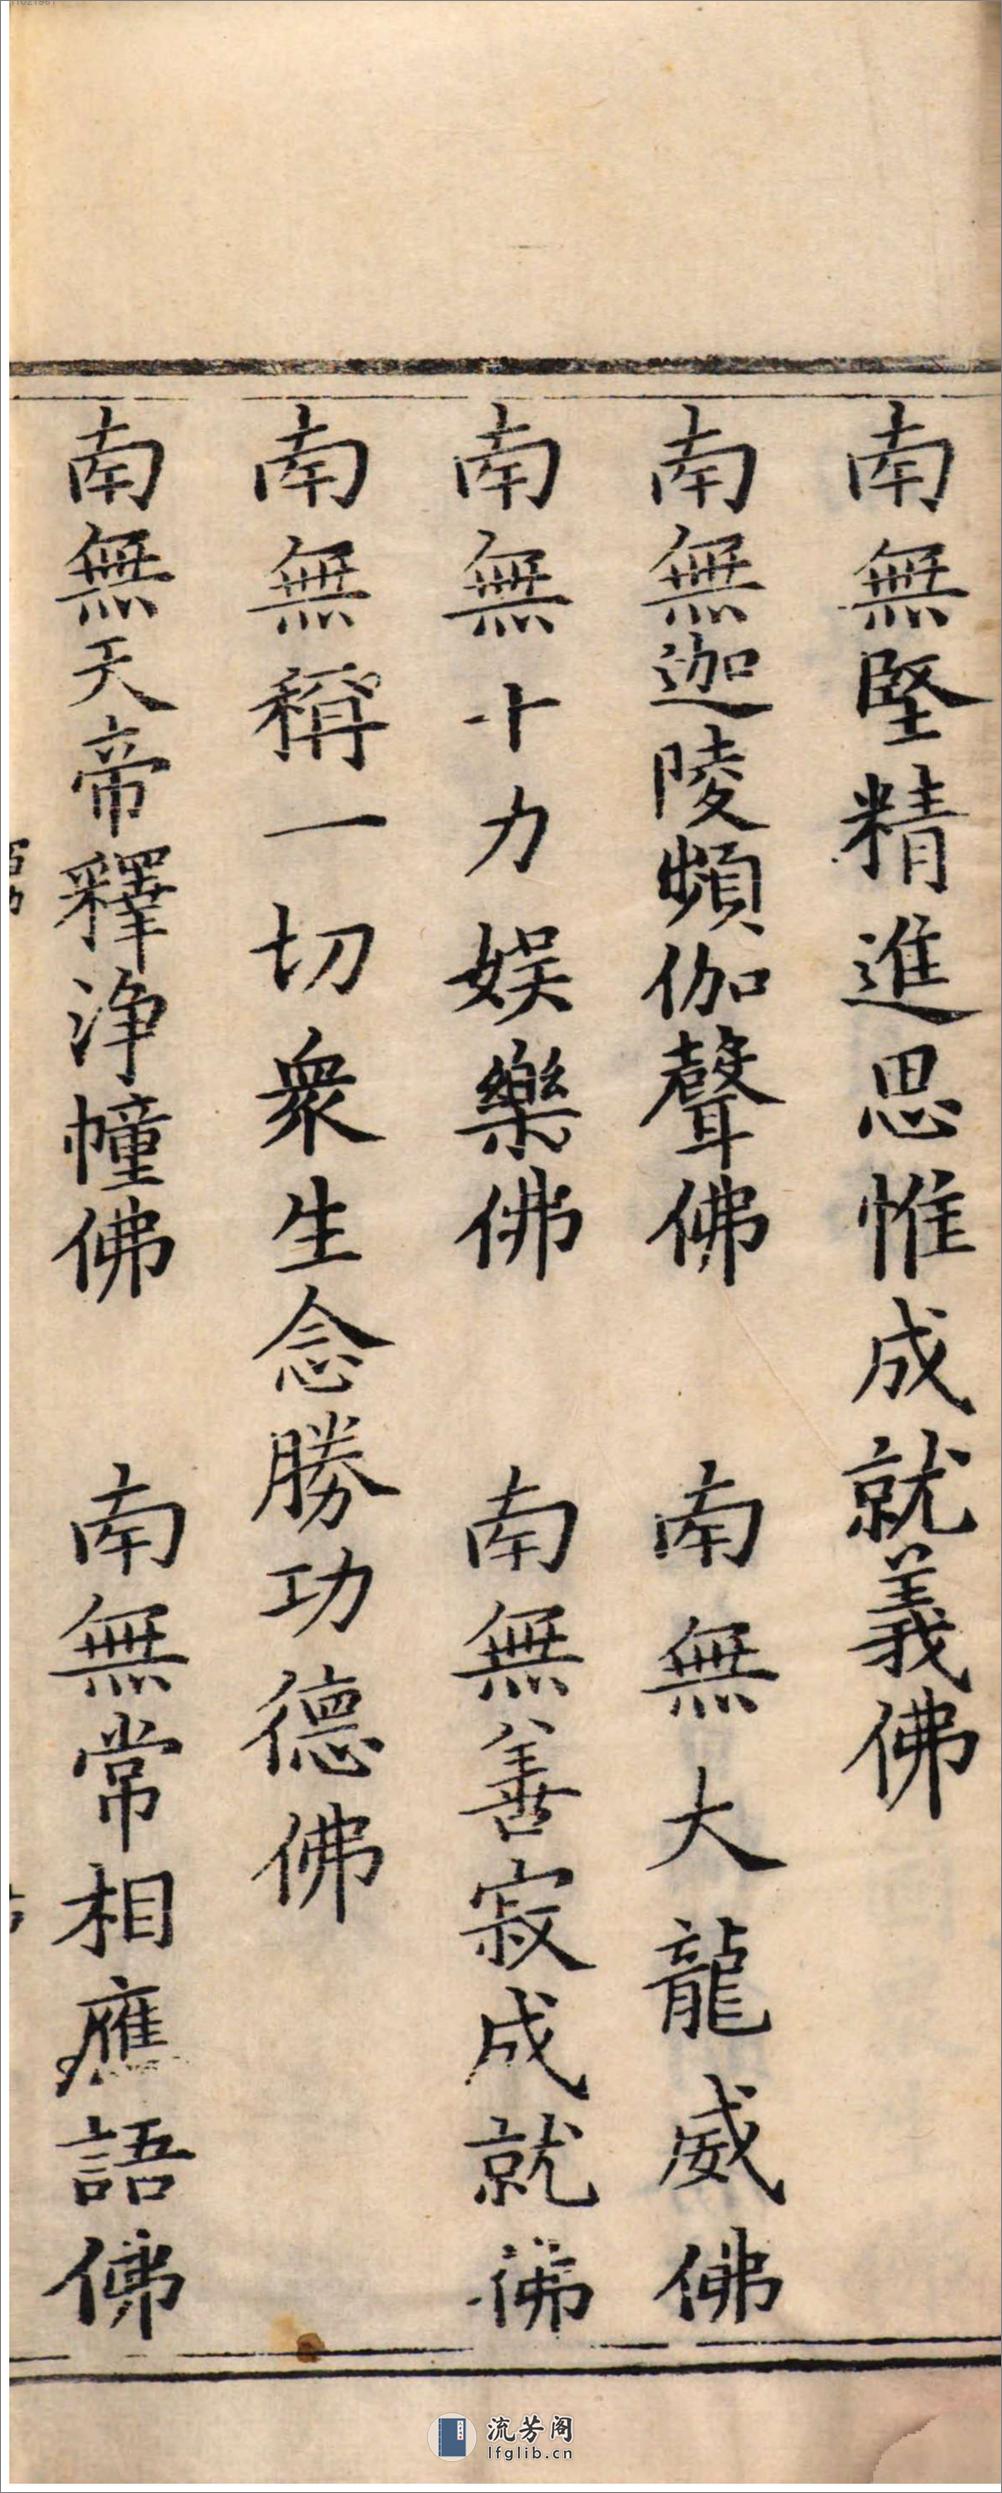 南無堅精進思惟成就義佛
南無迦陵頻伽聲佛　南無大龍威佛
南無十力娯樂佛　南無善寂成就佛
南無稱一切衆生念勝功德佛
南無天帝釋淨幢佛　南無常相應語佛
流芳阁
lfglib.cn